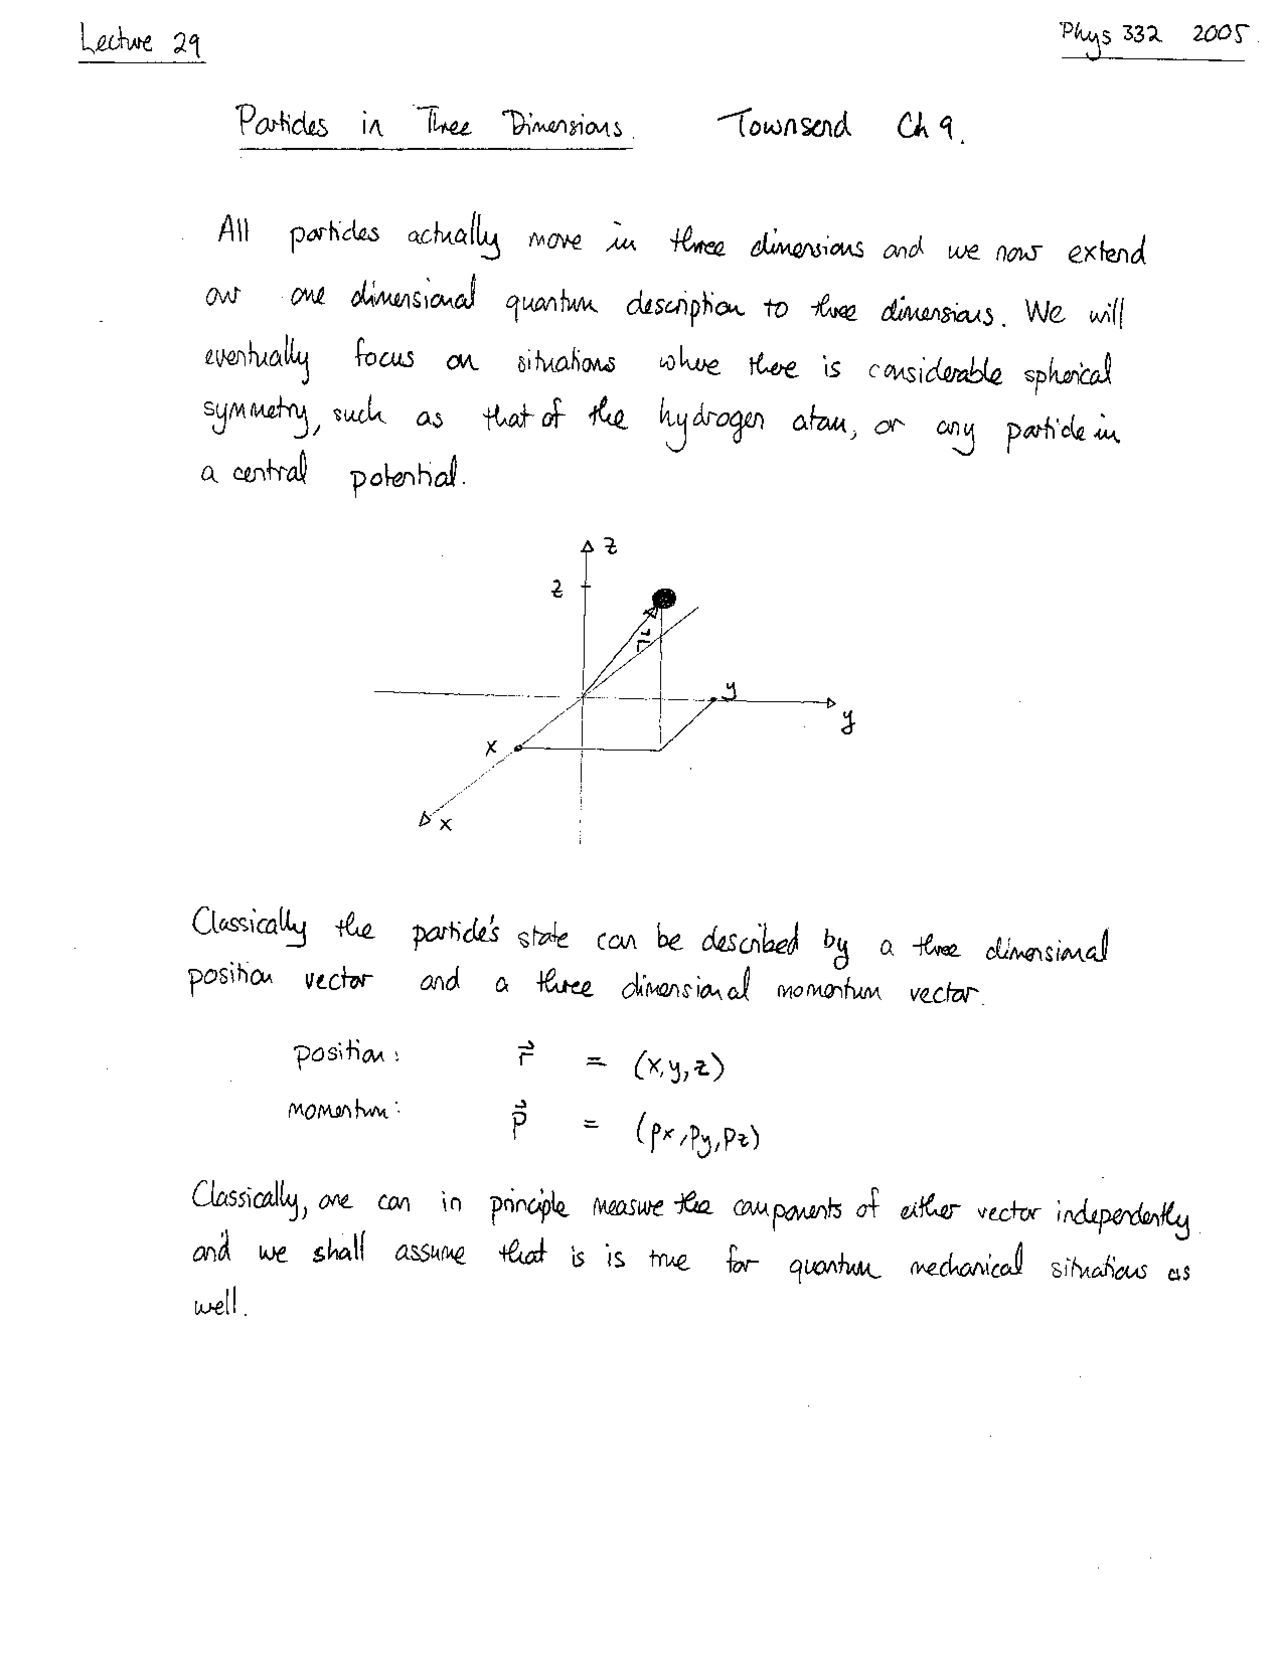 Lecture 29
Phys 332 2005
Particles in Three Dimensions. Townsend Ch 9.
All particles actually move in three dimensions and we now extend
our one dimensional quantum description to three dimensions. We will
eventually focus on situations where there is considerable spherical
symmetry, such as that of the hydrogen atom, or any particle in
a central potential.
z
z
r⃗
y
y
x
x
Classically the particle's state can be described by a three dimensional
position vector and a three dimensional momentum vector.
position: r⃗ = (x,y,z)
momentum: p⃗ = (px,py,pz)
Classically, one can in principle measure the components of either vector independently
and we shall assume that is is true for quantum mechanical situations as
well.